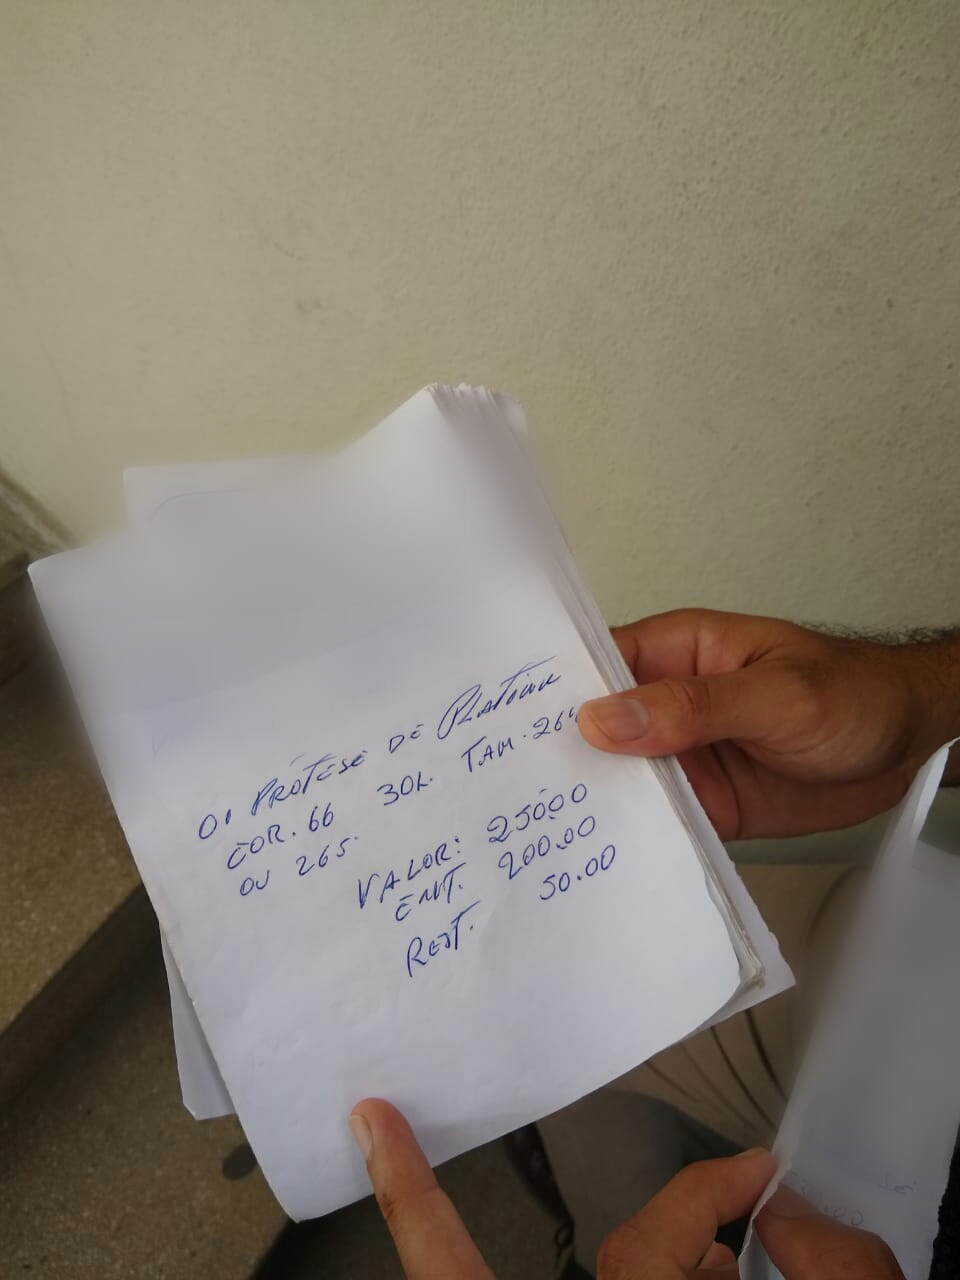 01 PRÓTESE DE PLATINA
COR. 66 30L. TAM. 264
OU 265.
VALOR: 250.00
ENT. 200.00
REST. 50.00